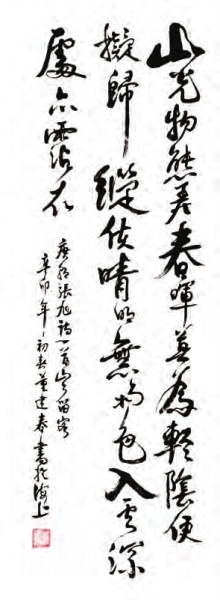 山光物態弄春暉莫為輕陰便
擬歸縱使晴明無雨色入雲深
處亦霑衣
唐朝張旭詩一首山留客
辛卯年初春董建春書於海上